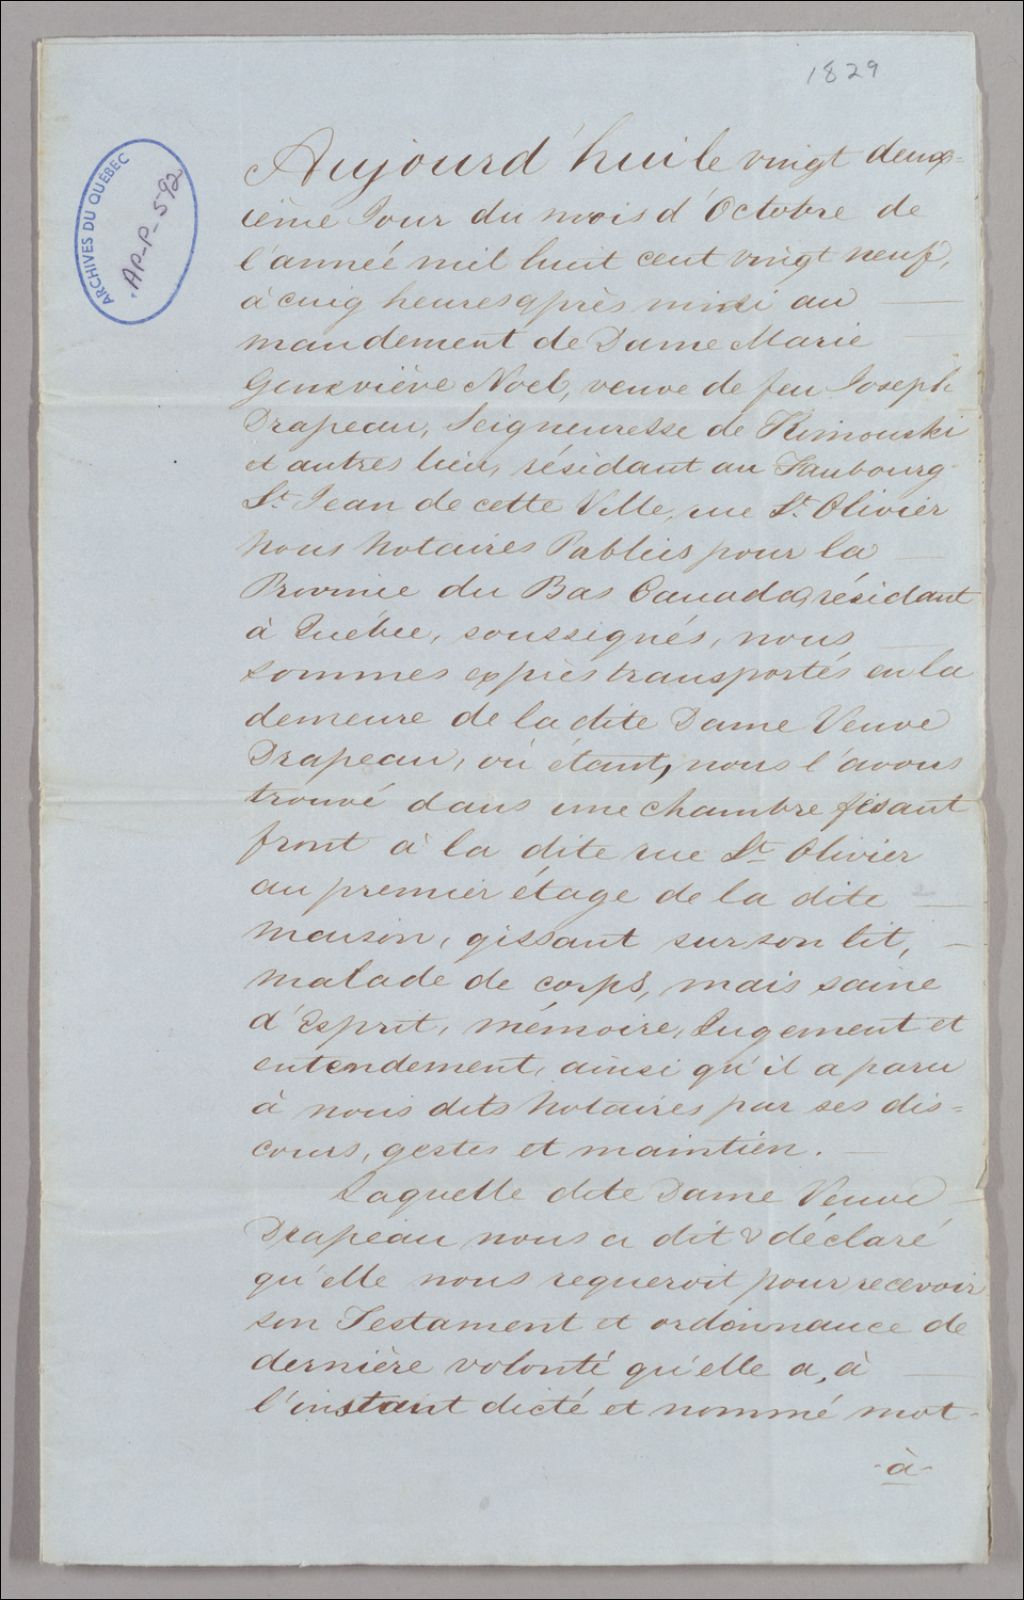 1829
ARCHIVES DU QUÉBEC
AP-P-592
Aujourd'hui le vingt deux=
ième Jour du mois d'Octobre de
l'année mil huit cent vingt neuf,
à cinq heures après midi au
mandement de Dame Marie
Geneviève Noel, veuve de feu Joseph
Drapeau, Seigneuresse de Rimouski
et autres lieu, résidant au Faubourg
St. Jean de cette Ville, rue St. Olivier
Nous Notaires Publics pour la
Province du Bas Canada résidant
à Québec, soussignés, nous
sommes exprès transportés en la
demeure de la dite Dame Veuve
Drapeau, où étant, nous l'avons
trouvé dans une chambre fesant
front à la dite rue St. Olivier
au premier étage de la dite
Maison, gissant sur son lit,
malade de corps, mais saine
d'Esprit, mémoire, Jugement et
entendement, ainsi qu'il a paru
à nous dits Notaires par ses dis=
cours, gestes et maintien.
Laquelle dite Dame Veuve
Drapeau nous a dit & déclaré
qu'elle nous requeroit pour recevoir
son Testament et ordonnance de
dernière volonté qu'elle a, à
l'instant dicté et nommé mot-
-à-